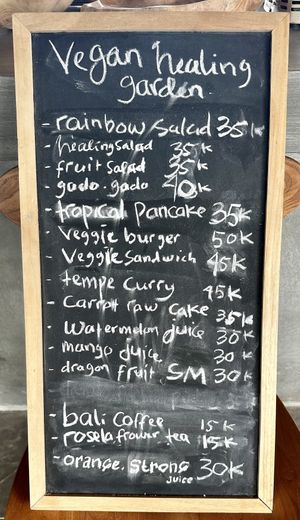 Vegan healing
garden.
- rainbow salad 35K
- healing salad 35K
- fruit salad 35K
- gado-gado 40K
- tropical Pancake 35K
- Veggie burger 50K
- Veggie Sandwich 45K
tempe curry 45K
- Carrot raw Cake 35K
- Watermelon juice 30K
- mango juice 30K
- dragon fruit. SM 30K
- bali Coffee 15K
- rosela flower tea 15K
- orange. strong 30K
juice